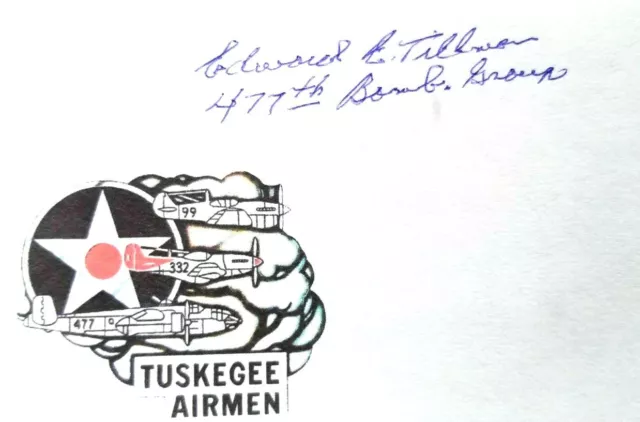 Edward L. Tillmon
477th Bomb. Group
99
332
477
TUSKEGEE
AIRMEN